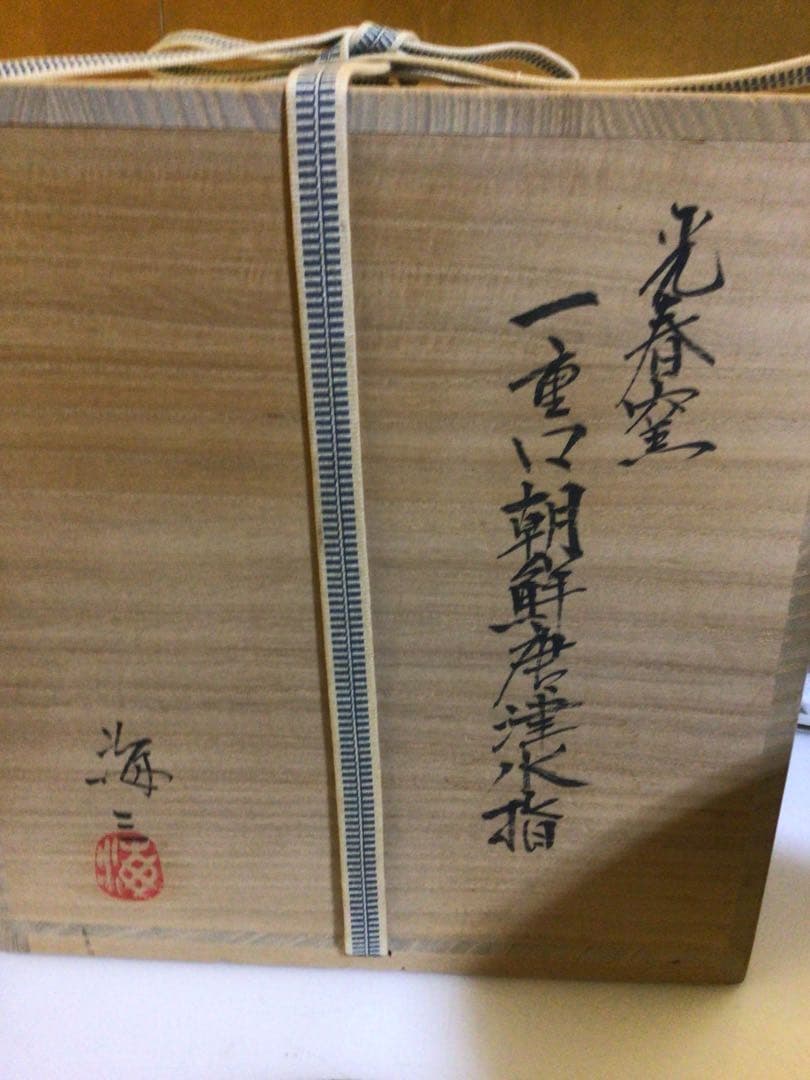 光春窯
一重口朝鮮唐津水指
海三
海